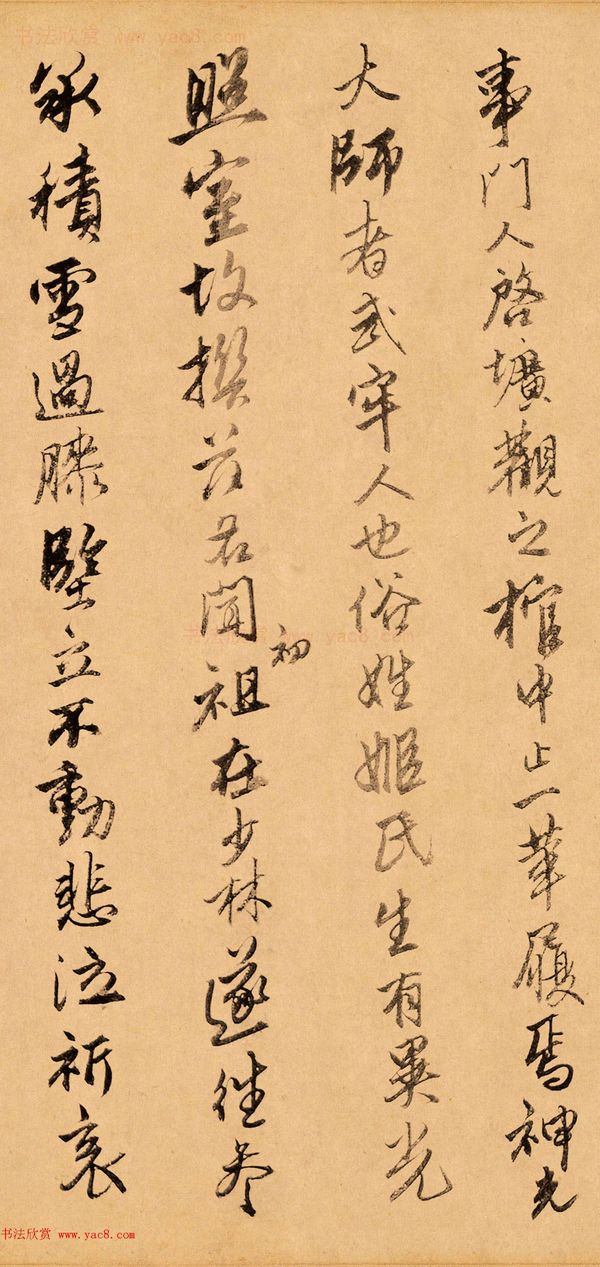 书法欣赏 www.yac8.com
事門人啓壙觀之棺中止一革履焉神光
大師者武牢人也俗姓姬氏生有異光
照室故撰茲名聞初祖在少林遂往参
承積雪過膝堅立不動悲泣祈哀
书法欣赏 www.yac8.com
书法欣赏 www.yac8.com